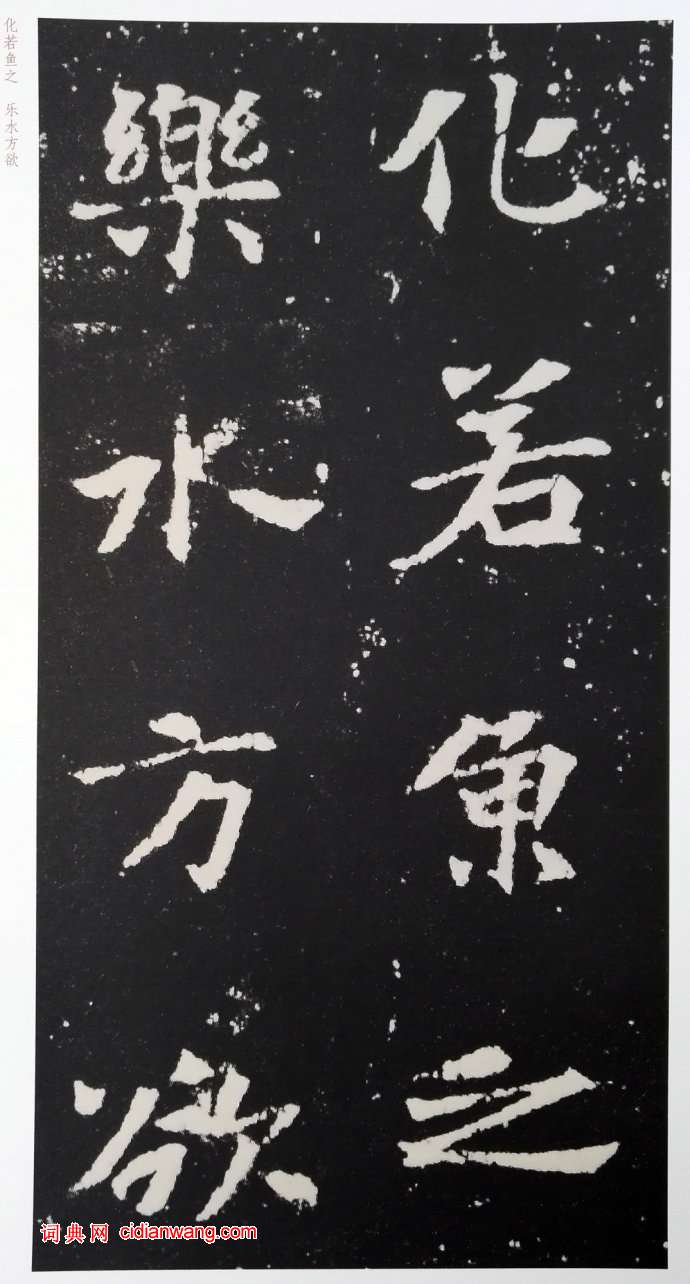 化若鱼之 乐水方欲
化若魚之
樂水方欲
词典网 cidianwang.com